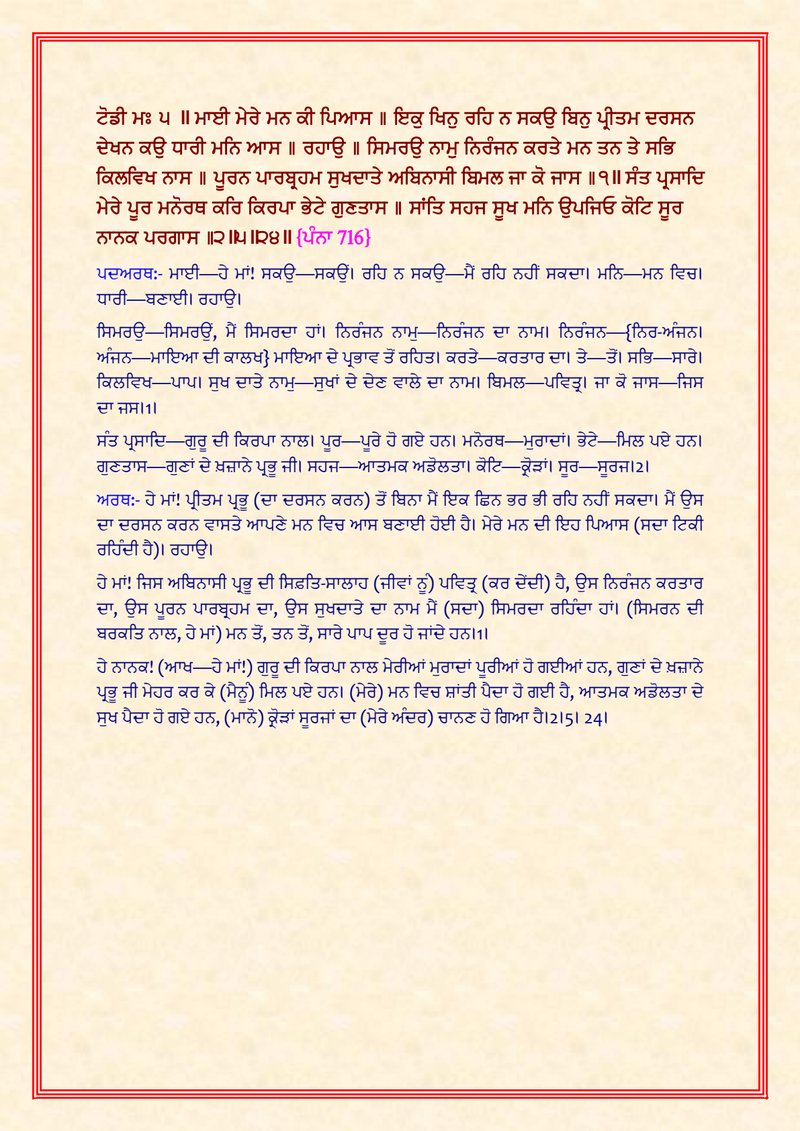 ਟੋਡੀ ਮਃ ੫ ॥ ਮਾਈ ਮੇਰੇ ਮਨ ਕੀ ਪਿਆਸ ॥ ਇਕੁ ਖਿਨੁ ਰਹਿ ਨ ਸਕਉ ਬਿਨੁ ਪ੍ਰੀਤਮ ਦਰਸਨ
ਦੇਖਨ ਕਉ ਧਾਰੀ ਮਨਿ ਆਸ ॥ ਰਹਾਉ ॥ ਸਿਮਰਉ ਨਾਮੁ ਨਿਰੰਜਨ ਕਰਤੇ ਮਨ ਤਨ ਤੇ ਸਭਿ
ਕਿਲਵਿਖ ਨਾਸ ॥ ਪੂਰਨ ਪਾਰਬ੍ਰਹਮ ਸੁਖਦਾਤੇ ਅਬਿਨਾਸੀ ਬਿਮਲ ਜਾ ਕੋ ਜਾਸ ॥੧॥ ਸੰਤ ਪ੍ਰਸਾਦਿ
ਮੇਰੇ ਪੂਰ ਮਨੋਰਥ ਕਰਿ ਕਿਰਪਾ ਭੇਟੇ ਗੁਣਤਾਸ ॥ ਸਾਂਤਿ ਸਹਜ ਸੂਖ ਮਨਿ ਉਪਜਿਓ ਕੋਟਿ ਸੂਰ
ਨਾਨਕ ਪਰਗਾਸ ॥੨॥੫॥੨੪॥ {ਪੰਨਾ 716}
ਪਦਅਰਥ:- ਮਾਈ—ਹੇ ਮਾਂ! ਸਕਉ—ਸਕਉਂ। ਰਹਿ ਨ ਸਕਉ—ਮੈਂ ਰਹਿ ਨਹੀਂ ਸਕਦਾ। ਮਨਿ—ਮਨ ਵਿਚ।
ਧਾਰੀ—ਬਣਾਈ। ਰਹਾਉ।
ਸਿਮਰਉ—ਸਿਮਰਉਂ, ਮੈਂ ਸਿਮਰਦਾ ਹਾਂ। ਨਿਰੰਜਨ ਨਾਮੁ—ਨਿਰੰਜਨ ਦਾ ਨਾਮ। ਨਿਰੰਜਨ—{ਨਿਰ-ਅੰਜਨ।
ਅੰਜਨ—ਮਾਇਆ ਦੀ ਕਾਲਖ} ਮਾਇਆ ਦੇ ਪ੍ਰਭਾਵ ਤੋਂ ਰਹਿਤ। ਕਰਤੇ—ਕਰਤਾਰ ਦਾ। ਤੇ—ਤੋਂ। ਸਭਿ—ਸਾਰੇ।
ਕਿਲਵਿਖ—ਪਾਪ। ਸੁਖ ਦਾਤੇ ਨਾਮੁ—ਸੁਖਾਂ ਦੇ ਦੇਣ ਵਾਲੇ ਦਾ ਨਾਮ। ਬਿਮਲ—ਪਵਿਤ੍ਰ। ਜਾ ਕੋ ਜਾਸ—ਜਿਸ
ਦਾ ਜਸ।1।
ਸੰਤ ਪ੍ਰਸਾਦਿ—ਗੁਰੂ ਦੀ ਕਿਰਪਾ ਨਾਲ। ਪੂਰ—ਪੂਰੇ ਹੋ ਗਏ ਹਨ। ਮਨੋਰਥ—ਮੁਰਾਦਾਂ। ਭੇਟੇ—ਮਿਲ ਪਏ ਹਨ।
ਗੁਣਤਾਸ—ਗੁਣਾਂ ਦੇ ਖ਼ਜ਼ਾਨੇ ਪ੍ਰਭੂ ਜੀ। ਸਹਜ—ਆਤਮਕ ਅਡੋਲਤਾ। ਕੋਟਿ—ਕ੍ਰੋੜਾਂ। ਸੂਰ—ਸੂਰਜ।2।
ਅਰਥ:- ਹੇ ਮਾਂ! ਪ੍ਰੀਤਮ ਪ੍ਰਭੂ (ਦਾ ਦਰਸਨ ਕਰਨ) ਤੋਂ ਬਿਨਾ ਮੈਂ ਇਕ ਛਿਨ ਭਰ ਭੀ ਰਹਿ ਨਹੀਂ ਸਕਦਾ। ਮੈਂ ਉਸ
ਦਾ ਦਰਸਨ ਕਰਨ ਵਾਸਤੇ ਆਪਣੇ ਮਨ ਵਿਚ ਆਸ ਬਣਾਈ ਹੋਈ ਹੈ। ਮੇਰੇ ਮਨ ਦੀ ਇਹ ਪਿਆਸ (ਸਦਾ ਟਿਕੀ
ਰਹਿੰਦੀ ਹੈ)। ਰਹਾਉ।
ਹੇ ਮਾਂ! ਜਿਸ ਅਬਿਨਾਸੀ ਪ੍ਰਭੂ ਦੀ ਸਿਫ਼ਤਿ-ਸਾਲਾਹ (ਜੀਵਾਂ ਨੂੰ) ਪਵਿਤ੍ਰ (ਕਰ ਦੇਂਦੀ) ਹੈ, ਉਸ ਨਿਰੰਜਨ ਕਰਤਾਰ
ਦਾ, ਉਸ ਪੂਰਨ ਪਾਰਬ੍ਰਹਮ ਦਾ, ਉਸ ਸੁਖਦਾਤੇ ਦਾ ਨਾਮ ਮੈਂ (ਸਦਾ) ਸਿਮਰਦਾ ਰਹਿੰਦਾ ਹਾਂ। (ਸਿਮਰਨ ਦੀ
ਬਰਕਤਿ ਨਾਲ, ਹੇ ਮਾਂ) ਮਨ ਤੋਂ, ਤਨ ਤੋਂ, ਸਾਰੇ ਪਾਪ ਦੂਰ ਹੋ ਜਾਂਦੇ ਹਨ।1।
ਹੇ ਨਾਨਕ! (ਆਖ—ਹੇ ਮਾਂ!) ਗੁਰੂ ਦੀ ਕਿਰਪਾ ਨਾਲ ਮੇਰੀਆਂ ਮੁਰਾਦਾਂ ਪੂਰੀਆਂ ਹੋ ਗਈਆਂ ਹਨ, ਗੁਣਾਂ ਦੇ ਖ਼ਜ਼ਾਨੇ
ਪ੍ਰਭੂ ਜੀ ਮੇਹਰ ਕਰ ਕੇ (ਮੈਨੂੰ) ਮਿਲ ਪਏ ਹਨ। (ਮੇਰੇ) ਮਨ ਵਿਚ ਸ਼ਾਂਤੀ ਪੈਦਾ ਹੋ ਗਈ ਹੈ, ਆਤਮਕ ਅਡੋਲਤਾ ਦੇ
ਸੁਖ ਪੈਦਾ ਹੋ ਗਏ ਹਨ, (ਮਾਨੋ) ਕ੍ਰੋੜਾਂ ਸੂਰਜਾਂ ਦਾ (ਮੇਰੇ ਅੰਦਰ) ਚਾਨਣ ਹੋ ਗਿਆ ਹੈ।2।5। 24।